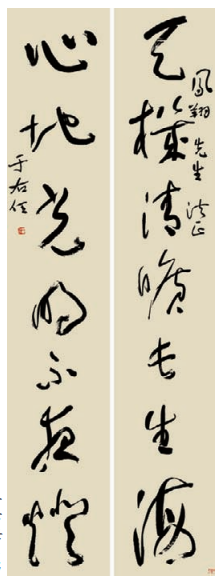 天機清曠長生海
鳳翔先生法正
心地光明不夜燈
于右任